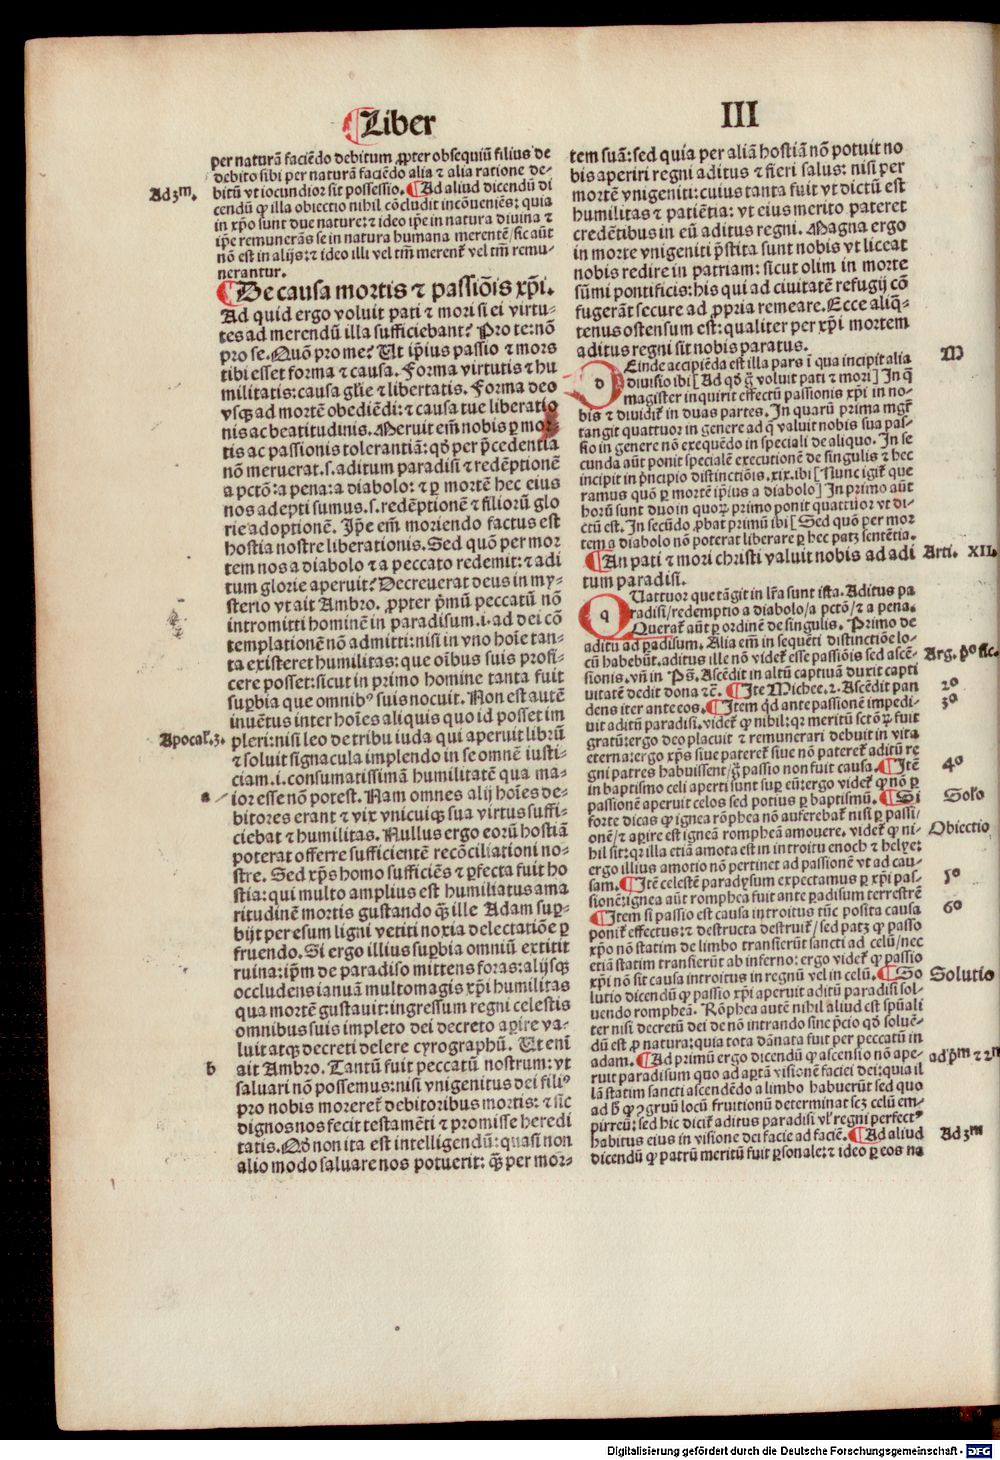 ¶Liber
III
per naturã faciẽdo debitum ꝓpter obsequiũ filius de
debito sibi per naturã faciẽdo alia ⁊ alia ratione de-
Ad 3m.
bitũ vt iocundior sit possessio. ¶Ad aliud dicendũ di
cendũ ꝙ illa obiectio nihil cõcludit incõueniẽs: quia
in xp̃o sunt due nature: ⁊ ideo ip̃e in natura diuina ⁊
ip̃e remunerãs se in natura humana merentẽ/ sic aũt
nõ est in alijs: ⁊ ideo illi vel tm̃ merenť vel tm̃ remu-
nerantur.
¶De causa mortis ⁊ passiõis xp̃i.
Ad quid ergo voluit pati ⁊ mori si ei virtu-
tes ad merendũ illa sufficiebant? Pro te: nõ
pro se. Quõ pro me? Ut ip̃ius passio ⁊ mors
tibi esset forma ⁊ causa. Forma virtutis ⁊ hu
militatis: causa gl̃ie ⁊ libertatis. Forma deo
vsqꝫ ad mortẽ obediẽdi: ⁊ causa tue liberatio
nis ac beatitudinis. Meruit em̃ nobis ꝑ mor-
tis ac passionis tolerantiã: qd̃ per p̃cedentia
nõ meruerat .s. aditum paradisi ⁊ redẽptionẽ
a pctõ: a pena: a diabolo: ⁊ ꝑ mortẽ hec eius
nos adepti sumus .s. redẽptionẽ ⁊ filiorũ glo
rie adoptionẽ. Ip̃e em̃ moriendo factus est
hostia nostre liberationis. Sed quõ per mor
tem nos a diabolo ⁊ a peccato redemit: ⁊ adi
tum glorie aperuit? Decreuerat deus in my-
sterio vt ait Ambro. ꝓpter p̃mũ peccatũ nõ
intromitti hominẽ in paradisum .i. ad dei cõ
templationẽ nõ admitti: nisi in vno hoĩe tan-
ta existeret humilitas: que oĩbus suis profi-
cere posset: sicut in primo homine tanta fuit
suꝑbia que omnibꝰ suis nocuit. Non est autẽ
inuẽtus inter hoĩes aliquis quo id posset im
Apocal̃. 3.
pleri: nisi leo de tribu iuda qui aperuit librũ
⁊ soluit signacula implendo in se omnẽ iusti-
ciam .i. consumatissimã humilitatẽ qua ma-
a
ior esse nõ potest. Nam omnes alij hoĩes de-
bitores erant ⁊ vix vnicuiqꝫ sua virtus suffi-
ciebat ⁊ humilitas. Nullus ergo eorũ hostiã
poterat offerre sufficientẽ recõciliationi no-
stre. Sed xp̃s homo sufficiẽs ⁊ ꝑfecta fuit ho
stia: qui multo amplius est humiliatus ama
ritudinẽ mortis gustando qꝫ̃ ille Adam suꝑ-
bijt per esum ligni vetiti noxia delectatiõe ꝑ
fruendo. Si ergo illius suꝑbia omniũ extitit
ruina: ip̃m de paradiso mittens foras: alijsqꝫ
occludens ianuã multomagis xp̃i humilitas
qua mortẽ gustauit: ingressum regni celestis
omnibus suis impleto dei decreto aꝑire va-
luit atqꝫ decreti delere cyrographũ. Ut enĩ
b
ait Ambro. Tantũ fuit peccatũ nostrum: vt
saluari nõ possemus: nisi vnigenitus dei filiꝰ
pro nobis moreret̃ debitoribus mortis: ⁊ sic
dignos nos fecit testamẽti ⁊ promisse heredi
tatis. Qd̃ non ita est intelligendũ: quasi non
alio modo saluare nos potuerit: qꝫ̃ per mor-
tem suã: sed quia per aliã hostiã nõ potuit no
bis aperiri regni aditus ⁊ fieri salus: nisi per
mortẽ vnigeniti: cuius tanta fuit vt dictũ est
humilitas ⁊ patiẽtia: vt eius merito pateret
credẽtibus in eũ aditus regni. Magna ergo
in morte vnigeniti p̃stita sunt nobis vt liceat
nobis redire in patriam: sicut olim in morte
sũmi pontificis: his qui ad ciuitatẽ refugij cõ
fugerãt secure ad ꝓpria remeare. Ecce aliq̃-
tenus ostensum est: qualiter per xp̃i mortem
aditus regni sit nobis paratus.
M
DEinde accipiẽda est illa pars ĩ qua incipit alia
diuisio ibi [Ad qd̃ g̃ voluit pati ⁊ mori] In q̃
magister inquirit effectũ passionis xp̃i in no-
bis ⁊ diuidiť in duas partes. In quarũ prima mgr̃
tangit quattuor in genere ad q̃ valuit nobis sua pas-
sio in genere nõ exequẽdo in speciali de aliquo. In se
cunda aũt ponit specialẽ executionẽ de singulis ⁊ hec
incipit in p̃ncipio distinctiõis .xix. ibi [Nunc igiť que
ramus quõ ꝑ mortẽ ip̃ius a diabolo] In primo aũt
horũ sunt duo in quoꝝ primo ponit quattuor vt di-
ctũ est. In secũdo ꝓbat primũ ibi [Sed quõ per mor
tem a diabolo nõ poterat liberare ꝑ hec patꝫ sentẽtia.
¶An pati ⁊ mori christi valuit nobis ad adi
Arti. XII.
tum paradisi.
QUattuor que tãgit in lr̃a sunt ista. Aditus pa
radisi/ redemptio a diabolo/ a pctõ/ ⁊ a pena.
Querať aũt ꝑ ordinẽ de singulis. Primo de
aditu ad ꝑadisum. Alia em̃ in sequẽti distinctiõe lo-
cũ habebũt. aditus ille nõ videť esse passiõis sed ascẽ-
Arg. p̃o sic.
sionis. vñ in Ps̃. Ascẽdit in altũ captiuã duxit capti
uitatẽ dedit dona ⁊c̃. ¶Itẽ Michee. 2. Ascẽdit pan
2º
dens iter ante eos. ¶Item qd̃ ante passionẽ impedi-
3º
uit aditũ paradisi. videť ꝙ nihil: qꝛ meritũ sctõꝝ fuit
gratũ: ergo deo placuit ⁊ remunerari debuit in vita
eterna: ergo xp̃s siue patereť siue nõ patereť aditũ re
gni patres habuissent/ g̃ passio non fuit causa. ¶Itẽ
4º
in baptismo celi aperti sunt suꝑ eũ: ergo videť ꝙ nõ ꝑ
passionẽ aperuit celos sed potius ꝑ baptismũ. ¶Si
Solõ
forte dicas ꝙ ignea rõphea nõ auferebať nisi ꝑ passi/
onẽ/ ⁊ aꝑire est igneã rompheã amouere. videť ꝙ ni-
Obiectio
hil sit: qꝛ illa etiã amota est in introitu enoch ⁊ helye:
ergo illius amotio nõ pertinet ad passionẽ vt ad cau-
sam. ¶Itẽ celestẽ paradysum expectamus ꝑ xp̃i pas-
5º
sionẽ: ignea aũt romphea fuit ante ꝑadisum terrestrẽ
¶Item si passio est causa introitus tũc posita causa
6º
poniť effectus: ⁊ destructa destruiť/ sed patꝫ ꝙ passo
xp̃o nõ statim de limbo transierũt sancti ad celũ/ nec
etiã statim transierũt ab inferno: ergo videť ꝙ passio
xp̃i nõ sit causa introitus in regnũ vel in celũ. ¶So
Solutio
lutio dicendũ ꝙ passio xp̃i aperuit aditũ paradisi sol-
uendo rompheã. Rõphea autẽ nihil aliud est spũali
ter nisi decretũ dei de nõ intrando sine p̃cio qd̃ soluẽ-
dũ est ꝓ natura: quia tota dãnata fuit per peccatũ in
adam. ¶Ad primũ ergo dicendũ ꝙ ascensio nõ ape-
ad p̃m ⁊ 2m
ruit paradisum quo ad aꝑtã visionẽ faciei dei: quia il
lã statim sancti ascendẽdo a limbo habuerũt sed quo
ad h̃ ꝙ ꝯgruũ locũ fruitionũ determinat scꝫ celũ em-
pirreũ: sed hic diciť aditus paradisi vl̃ regni perfectꝰ
habitus eius in visione dei facie ad faciẽ. ¶Ad aliud
Ad 3m
dicendũ ꝙ patrũ meritũ fuit ꝑsonale: ⁊ ideo ꝑ eos na
Digitalisierung gefördert durch die Deutsche Forschungsgemeinschaft - DFG